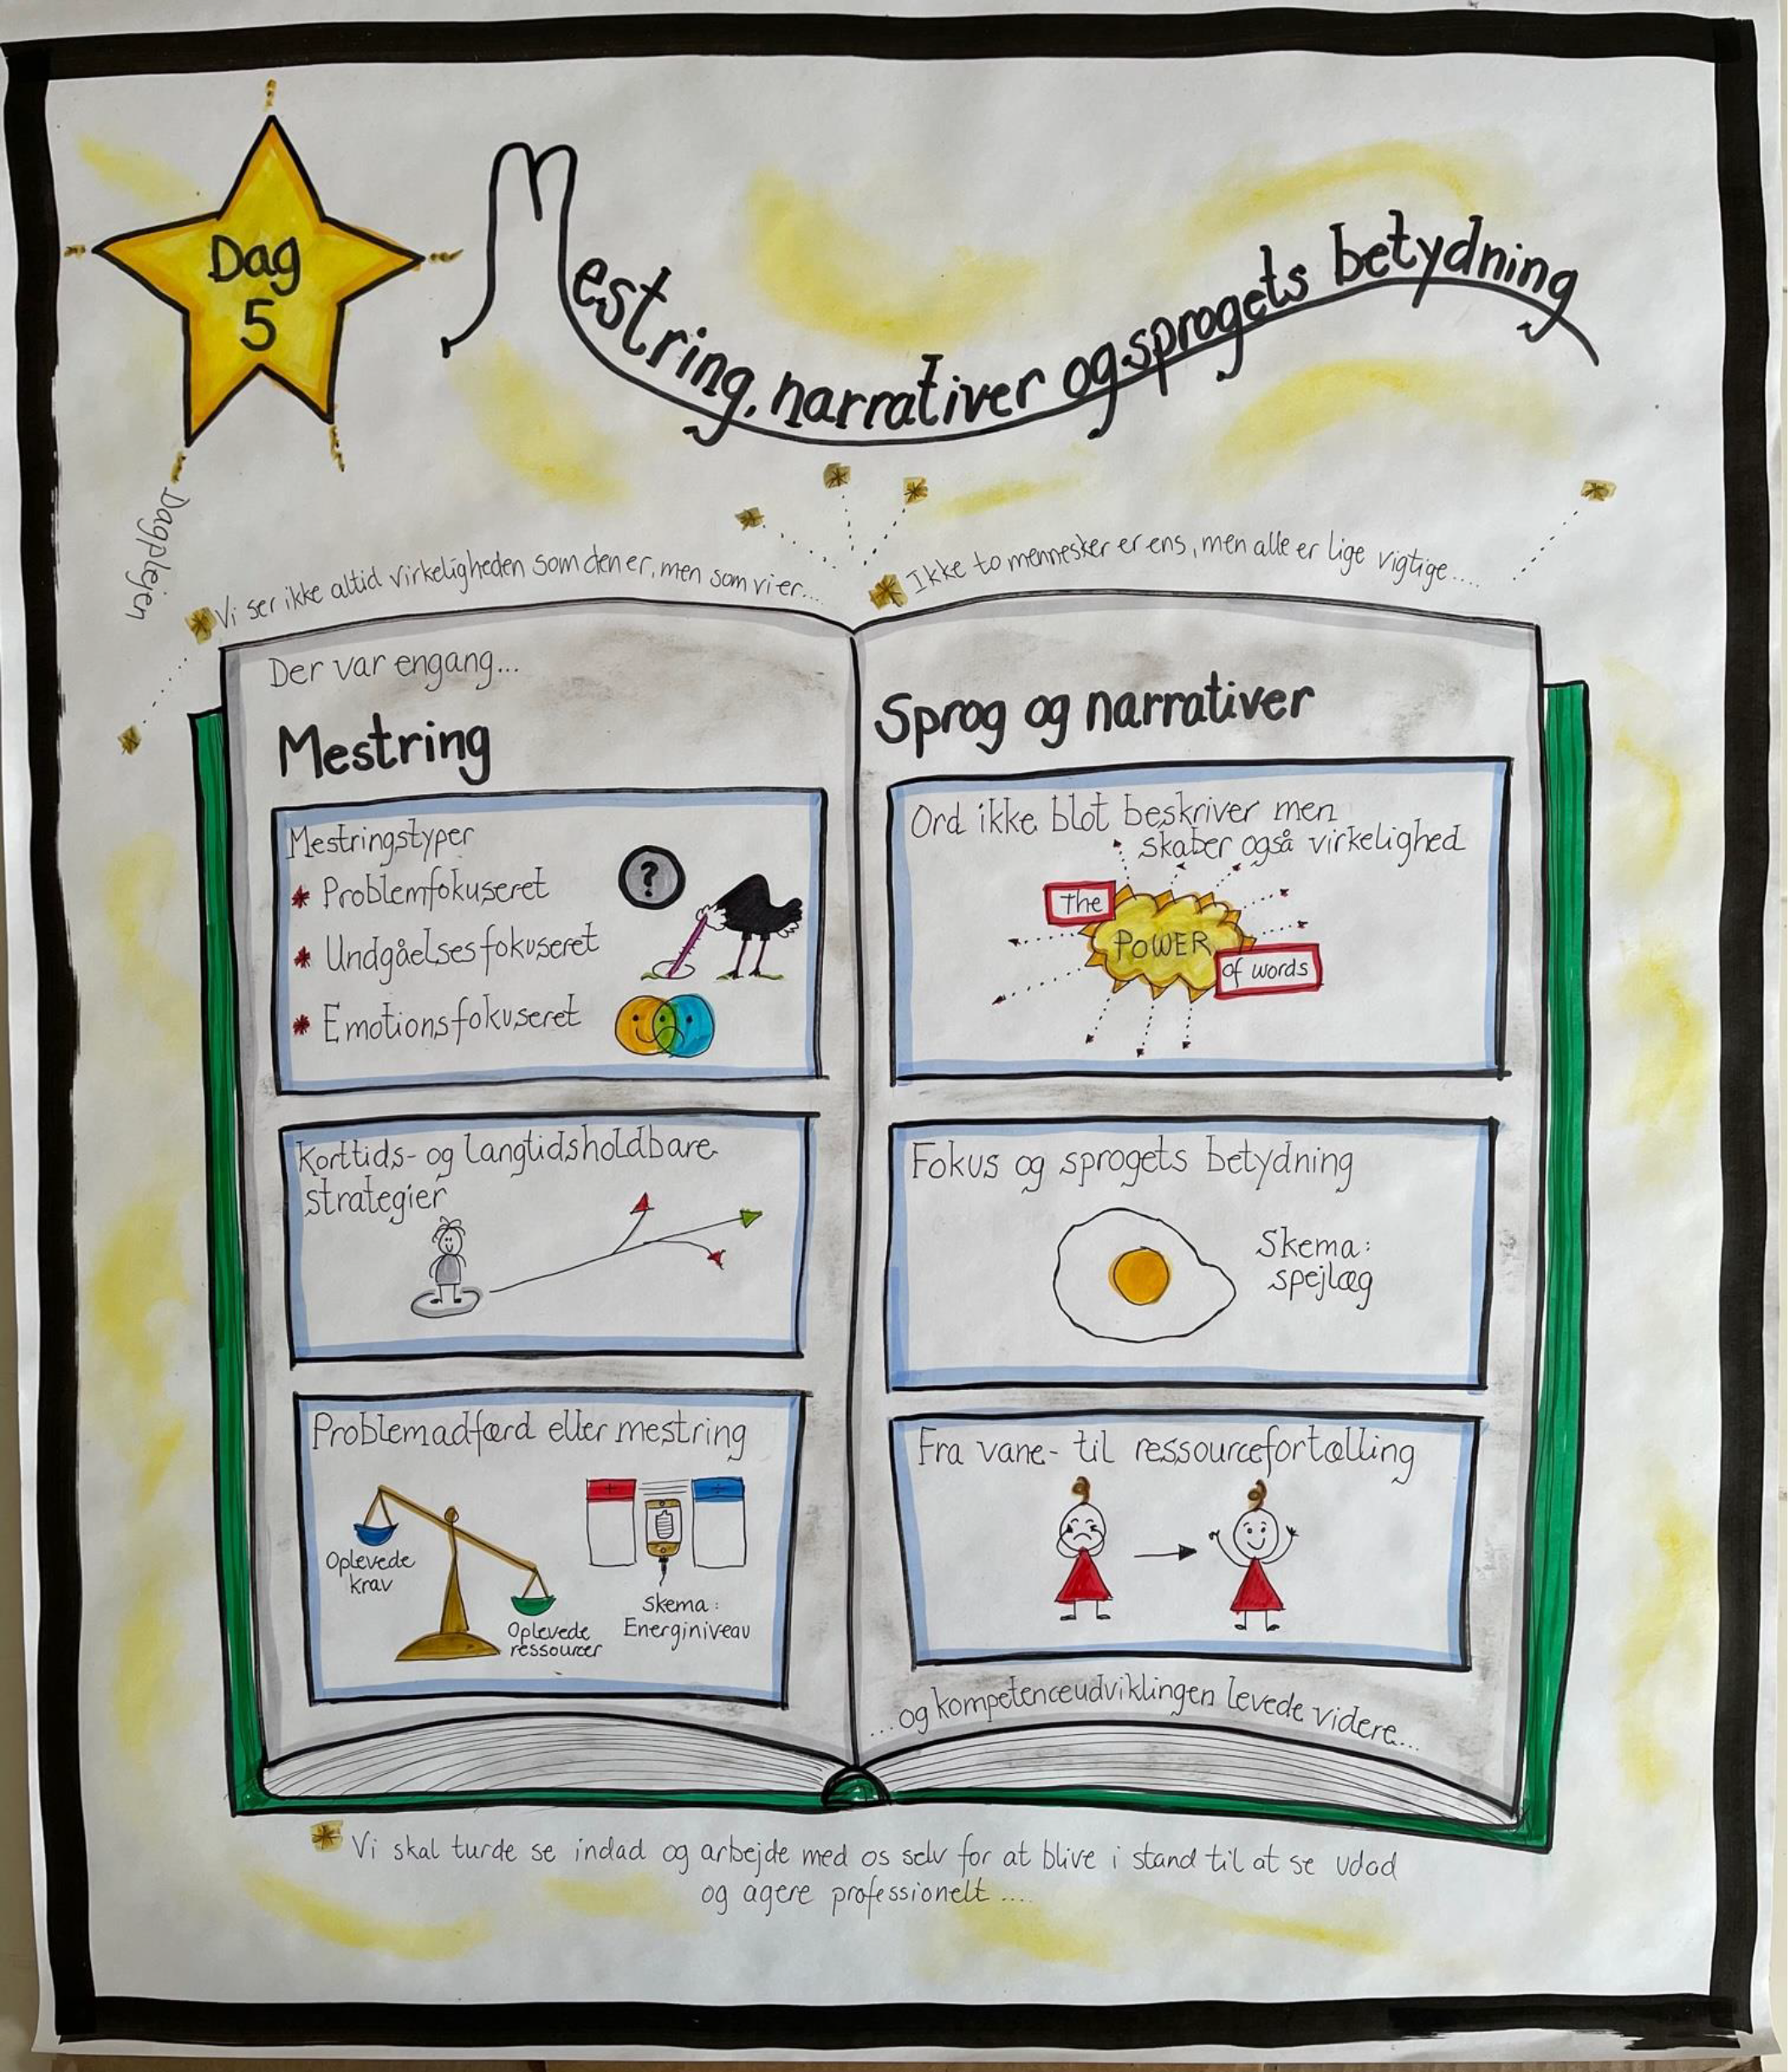 Dag
5
Mestring, narrativer og sprogets betydning
Dagplejen
Vi ser ikke altid virkeligheden som den er, men som vi er...
Ikke to mennesker er ens, men alle er lige vigtige....
Der var engang...
Mestring
Mestringstyper
?
* Problemfokuseret
* Undgåelsesfokuseret
* Emotionsfokuseret
Korttids- og langtidsholdbare
strategier
Problemadfærd eller mestring
+
÷
Oplevede
krav
Oplevede
ressourcer
Skema:
Energiniveau
Sprog og narrativer
Ord ikke blot beskriver men
skaber også virkelighed
The
POWER
of words
Fokus og sprogets betydning
Skema:
spejlæg
Fra vane- til ressourcefortælling
...og kompetenceudviklingen levede videre...
Vi skal turde se indad og arbejde med os selv for at blive i stand til at se udad
og agere professionelt....